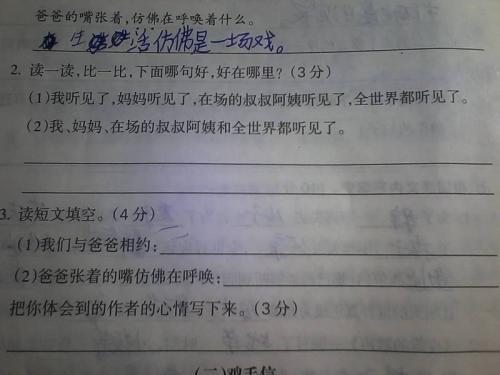 爸爸的嘴张着,仿佛在呼唤着什么。
生活仿佛是一场戏。
2. 读一读,比一比,下面哪句好,好在哪里?(3分)
(1)我听见了,妈妈听见了,在场的叔叔阿姨听见了,全世界都听见了。
(2)我、妈妈、在场的叔叔阿姨和全世界都听见了。
3. 读短文填空。(4分)
(1)我们与爸爸相约:
(2)爸爸张着的嘴仿佛在呼唤:
把你体会到的作者的心情写下来。(3分)
(二)鸡毛信